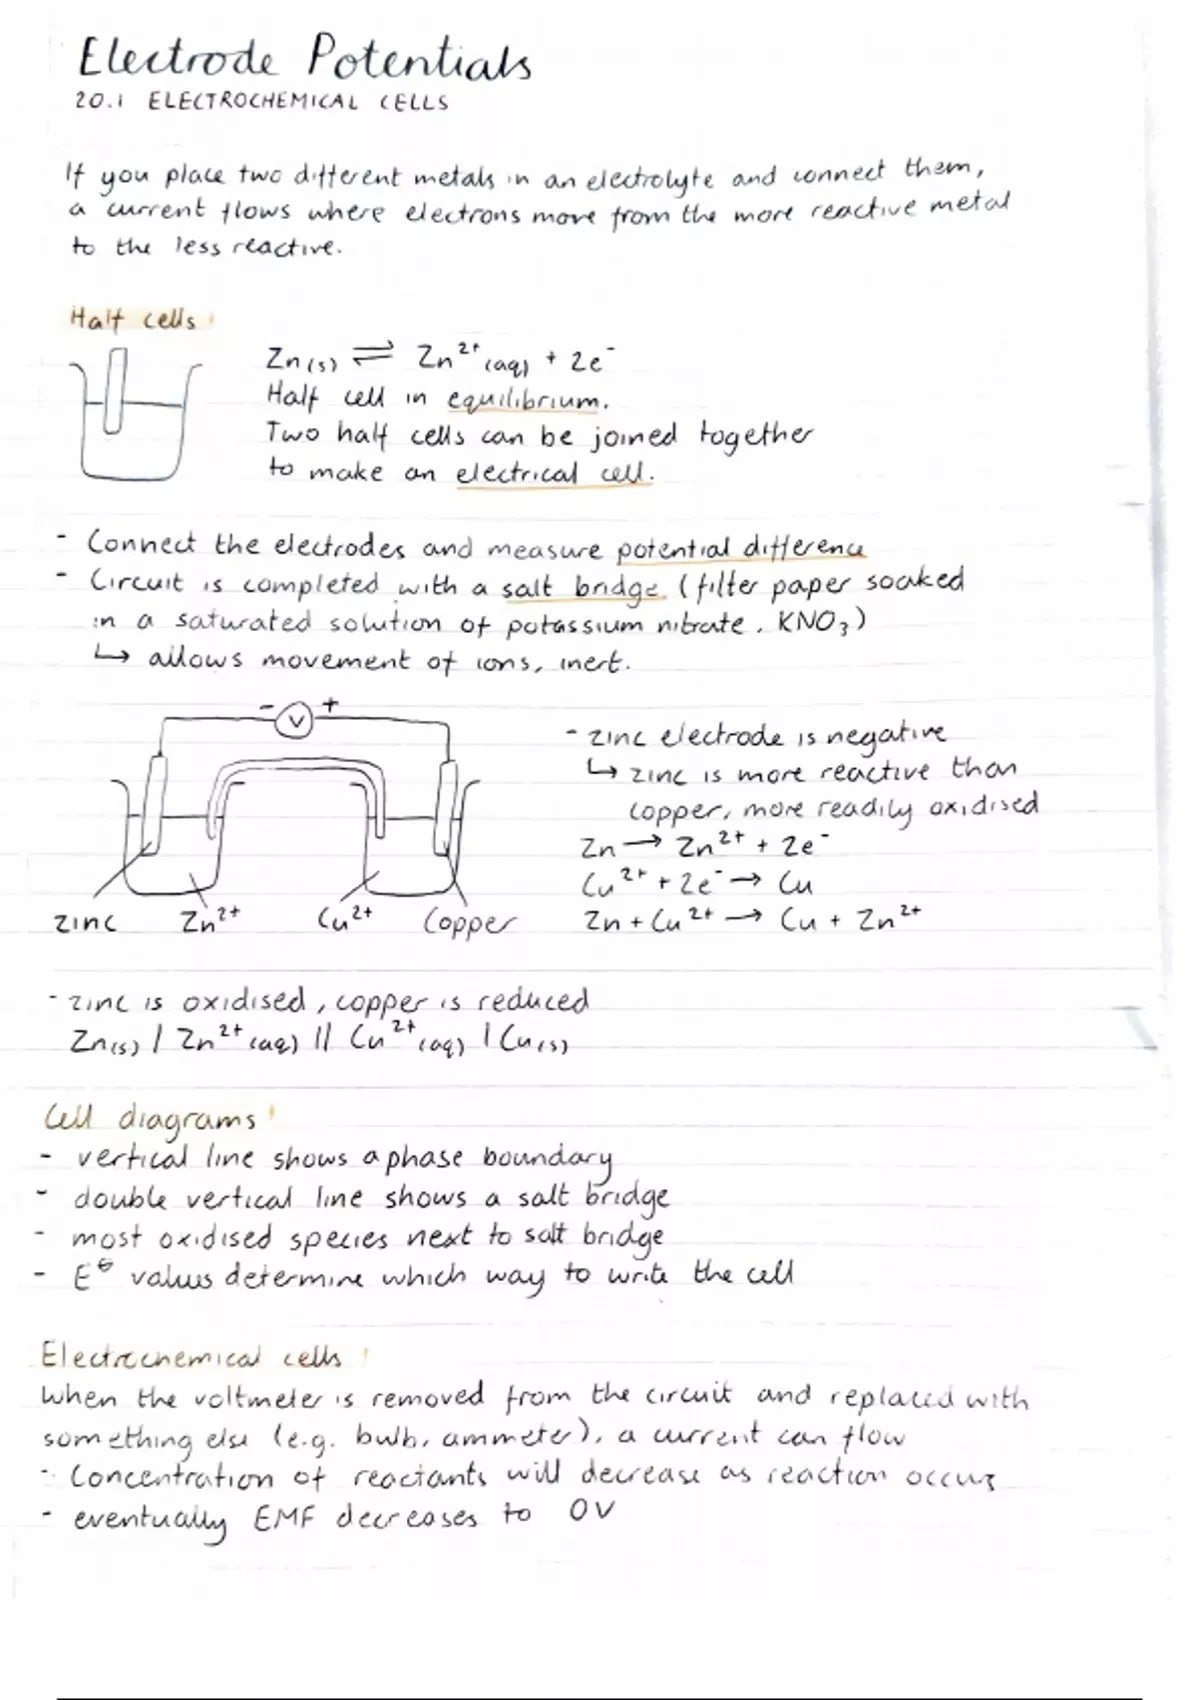 Electrode Potentials
20.1 ELECTROCHEMICAL CELLS
If you place two different metals in an electrolyte and connect them,
a current flows where electrons move from the more reactive metal
to the less reactive.
Half cells
Zn(s) ⇌ Zn²⁺(aq) + 2e⁻
Half cell in equilibrium.
Two half cells can be joined together
to make an electrical cell.
- Connect the electrodes and measure potential difference
- Circuit is completed with a salt bridge (filter paper soaked
in a saturated solution of potassium nitrate, KNO₃)
↳ allows movement of ions, inert.
- V +
zinc Zn²⁺ Cu²⁺ Copper
- zinc electrode is negative
↳ zinc is more reactive than
copper, more readily oxidised
Zn → Zn²⁺ + 2e⁻
Cu²⁺ + 2e⁻ → Cu
Zn + Cu²⁺ → Cu + Zn²⁺
- zinc is oxidised, copper is reduced
Zn(s) | Zn²⁺(aq) || Cu²⁺(aq) | Cu(s)
Cell diagrams
- vertical line shows a phase boundary
- double vertical line shows a salt bridge
- most oxidised species next to salt bridge
- E⦵ values determine which way to write the cell
Electrochemical cells
When the voltmeter is removed from the circuit and replaced with
something else (e.g. bulb, ammeter), a current can flow
- Concentration of reactants will decrease as reaction occurs
- eventually EMF decreases to 0V